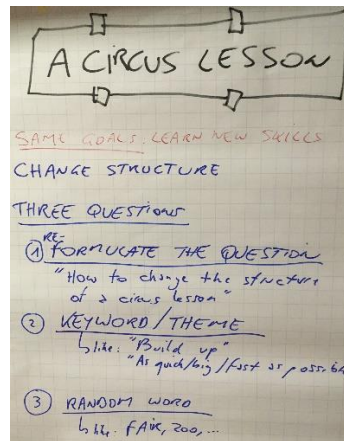 A CIRCUS LESSON
SAME GOALS: LEARN NEW SKILLS
CHANGE STRUCTURE
THREE QUESTIONS
① RE-FORMULATE THE QUESTION
"How to change the structure
of a circus lesson"
② KEYWORD/THEME
↳ like: "Build up"
"As quick/big/fast as possib
③ RANDOM WORD
↳ like: FAIR, ZOO, ...